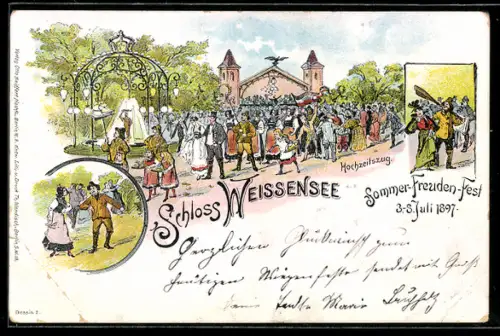 Hochzeitszug.
Schloss Weissensee
Sommer-Freuden-Fest
3.-8. Juli 1897.
Herzlichen Glückwunsch zum
heutigen Wiegenfeste sendet mit Gruß
Tante Marie
Dessin 2.